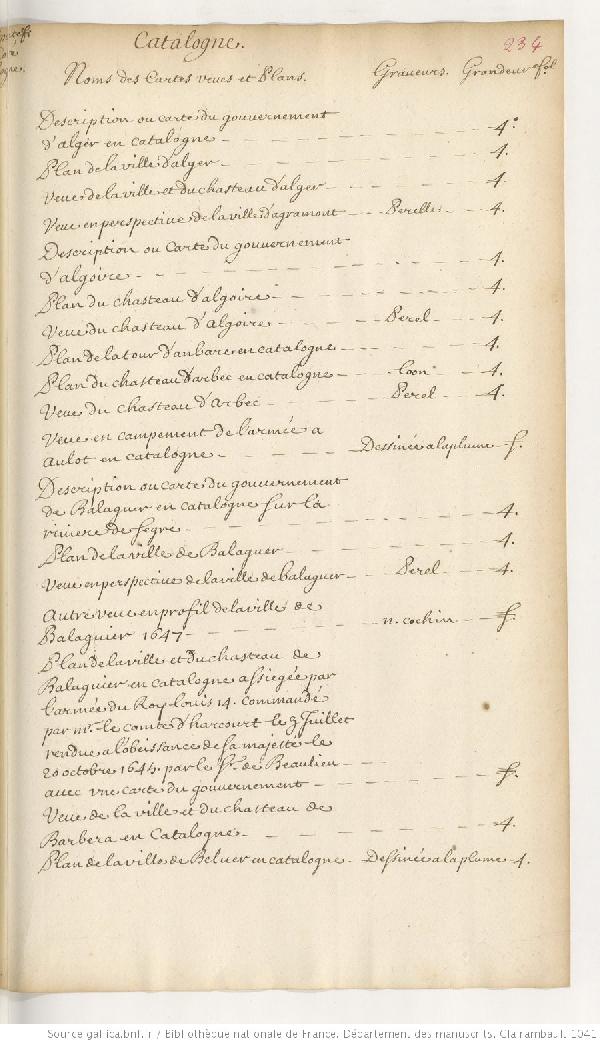 Catalogne.
234
Noms des Cartes veues et Plans. Graueurs. Grandeur
Description ou carte du gouuernement
d'alger en catalogne - 4.°
Plan de la ville d'alger - 4.
Veue de la ville et du chasteau d'alger - 4.
Veue en perspectiue de la ville d'agramont - Perelle - 4.
Description ou Carte du gouuernement
d'algoire - 4.
Plan du chasteau d'algoire - 4.
Veue du chasteau d'algoire - Perel - 4.
Plan de la tour d'anbare en catalogne - 4.
Plan du chasteau d'arbec en catalogne - 4.
Veue du chasteau d'Arbec - Perel - 4.
Veue en campement de l'armée a
aulot en catalogne - Dessinée a la plume - f.
Description ou carte du gouuernement
de Balaguer en catalogne sur la
riuiere de segre - 4.
Plan de la ville de Balaguer - 4.
Veue en perspectiue de la ville de balaguer - Perel - 4.
Autre veue en profil de la ville de
Balaguier 1647 - n. cochin - f.
Plan de la ville et du chasteau de
Balaguier en catalogne assiegée par
l'armée du Roy Louis 14. commandé
par mr. le comte d'harcourt le 9 Juillet
rendue a l'obeissance de sa majesté le
20 octobre 1645. par le Sr. de Beaulieu -
auec vne carte du gouuernement - f.
Veue de la ville et du chasteau de
Barbera en Catalogne - 4.
Plan de la ville de Beluer en catalogne - Dessinée a la plume - 4.
Source gallica.bnf.fr / Bibliothèque nationale de France. Département des manuscrits. Clairambault 1041